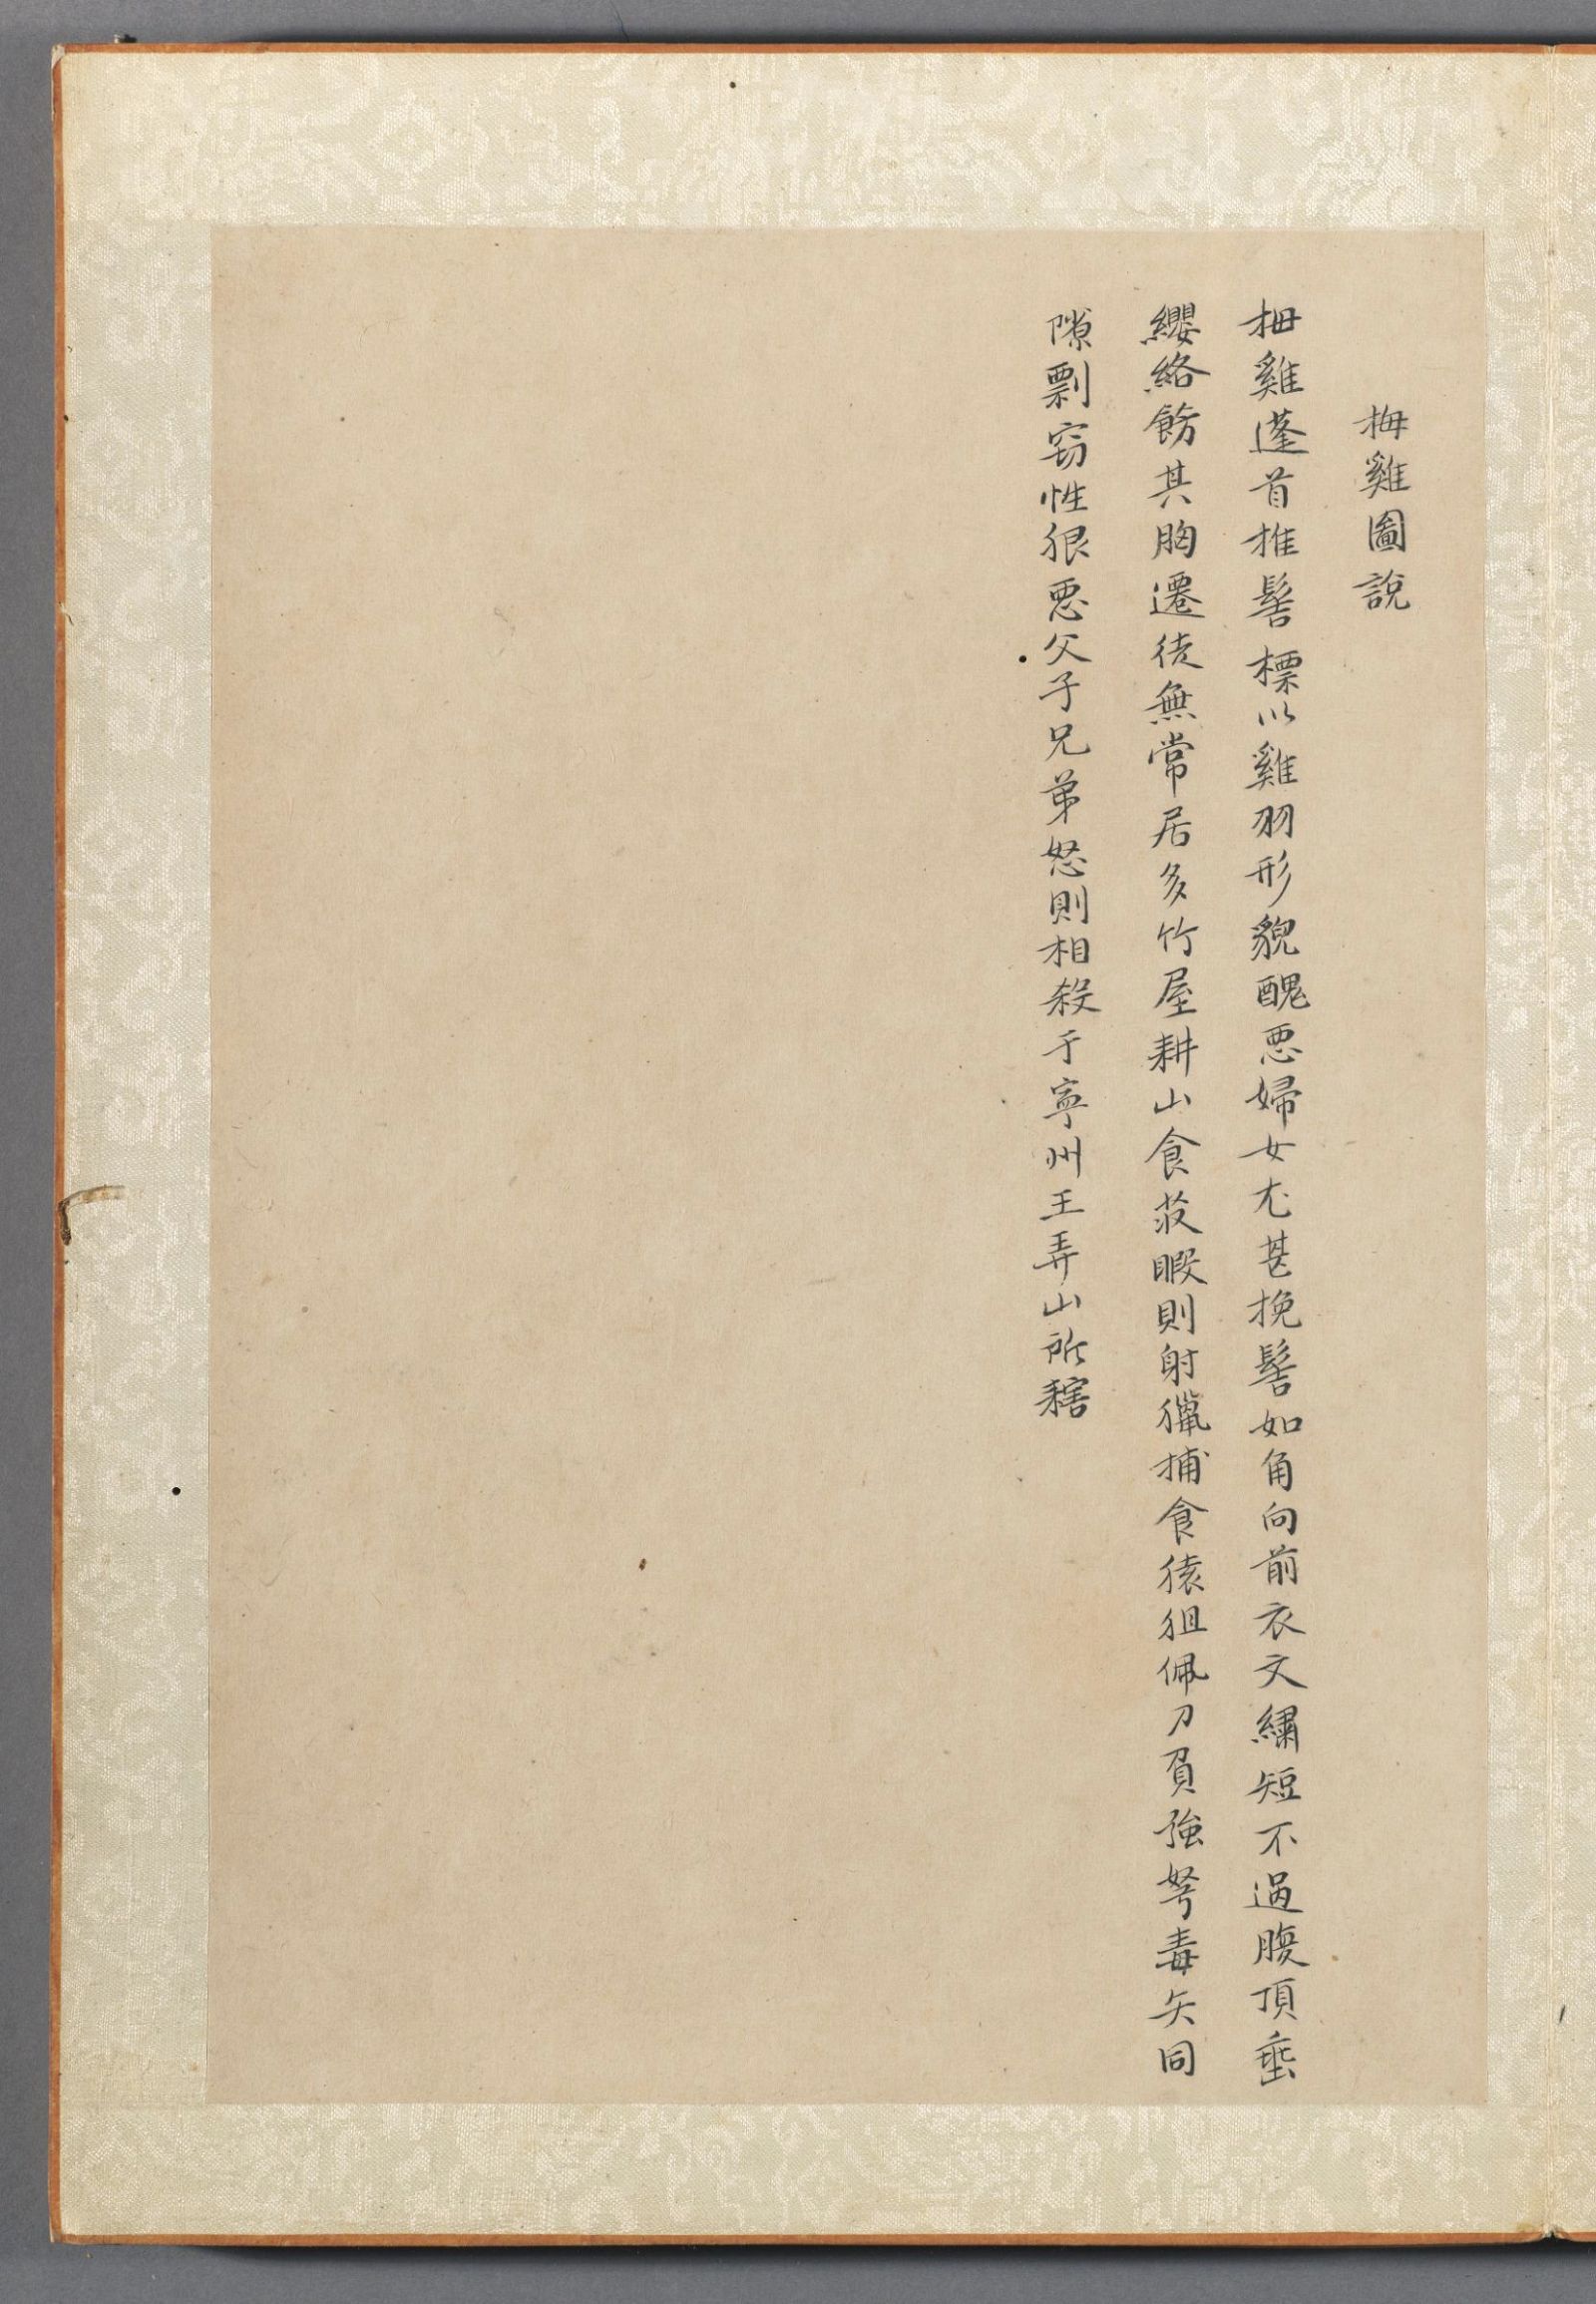 拇雞圖說
拇雞蓬首椎髻標以雞羽形貌醜惡婦女尤甚挽髻如角向前衣文繡短不過腹頂垂
纓絡飾其胸遷徙無常居多竹屋耕山食荍暇則射獵捕食猿狙佩刀負強弩毒矢同
隙剽竊性狠惡父子兄弟怒則相殺于寧州王弄山所轄